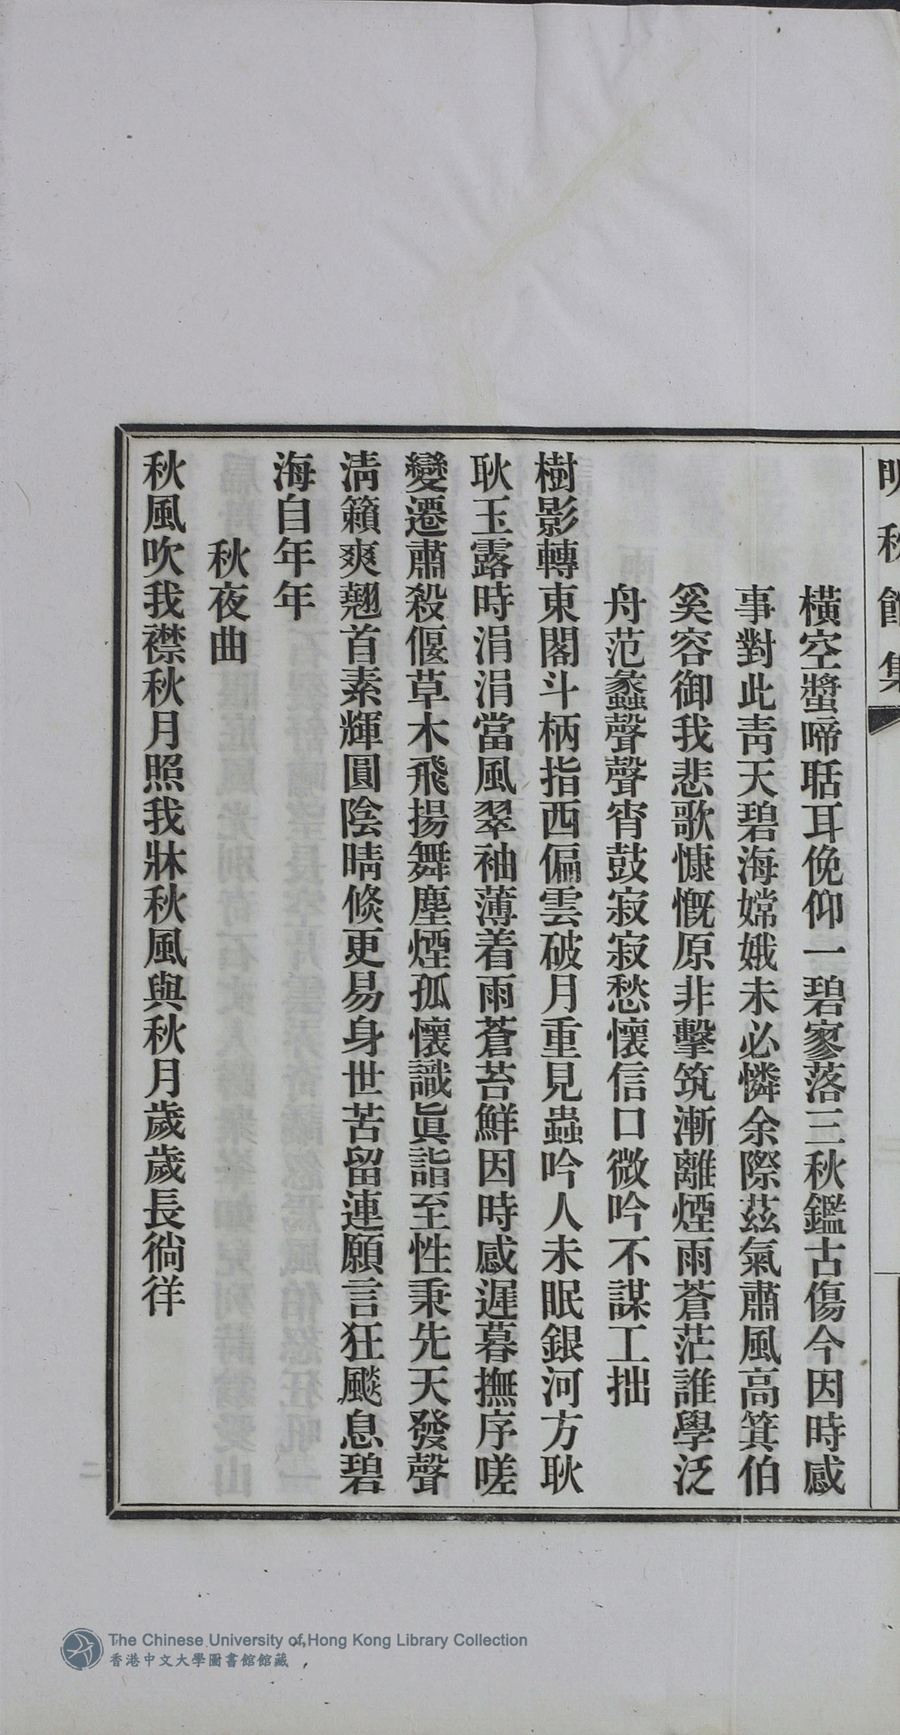 明秋館集
橫空螿啼聒耳俛仰一碧寥落三秋鑑古傷今因時感
事對此靑天碧海嫦娥未必憐余際茲氣肅風高箕伯
奚容御我悲歌慷慨原非擊筑漸離煙雨蒼茫誰學泛
舟范蠡聲聲宵鼓寂寂愁懷信口微吟不謀工拙
樹影轉東閣斗柄指西偏雲破月重見蟲吟人未眠銀河方耿
耿玉露時涓涓當風翠袖薄着雨蒼苔鮮因時感遲暮撫序嗟
變遷肅殺偃草木飛揚舞塵煙孤懷識眞詣至性秉先天發聲
淸籟爽翹首素輝圓陰晴倏更易身世苦留連願言狂颷息碧
海自年年
秋夜曲
秋風吹我襟秋月照我牀秋風與秋月歲歲長徜徉
The Chinese University of Hong Kong Library Collection
香港中文大學圖書館館藏